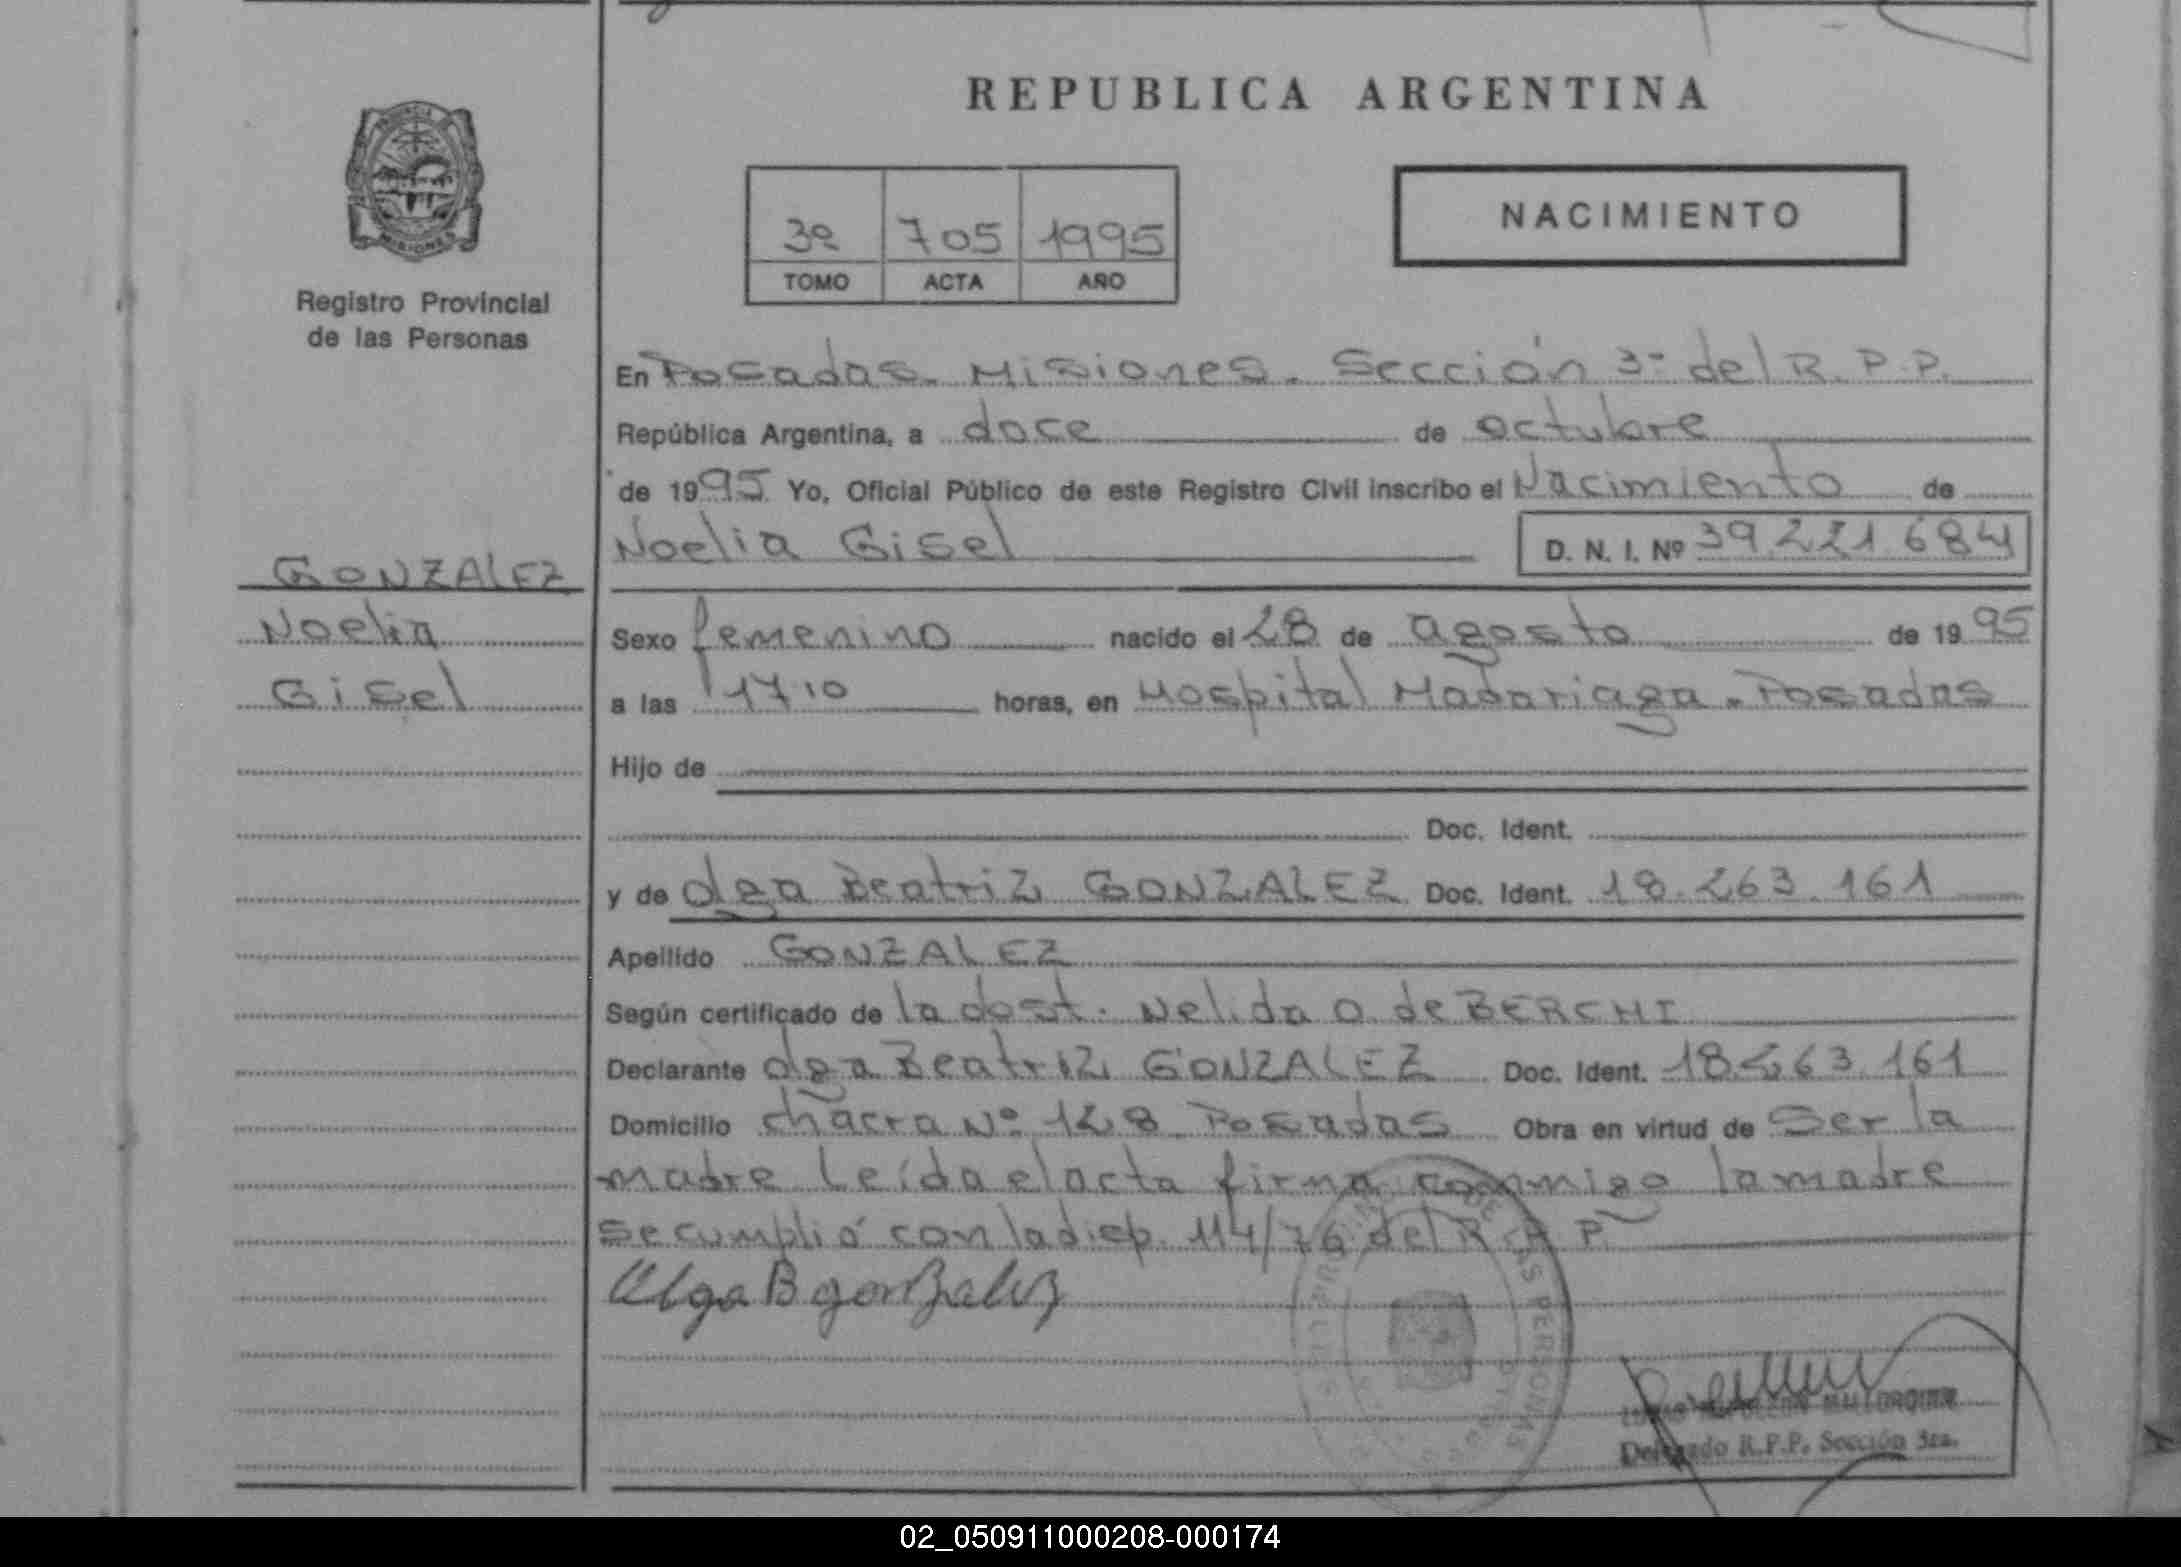 REPUBLICA ARGENTINA
3º 705 1995
TOMO ACTA AÑO
NACIMIENTO
Registro Provincial
de las Personas
GONZALEZ
Noelia
Gisel
En Posadas. Misiones. Sección 3ª del R. P. P.
República Argentina, a doce de octubre
de 1995 Yo, Oficial Público de este Registro Civil inscribo el Nacimiento de
Noelia Gisel D. N. I. Nº 39.221.684
Sexo femenino nacido el 28 de agosto de 1995
a las 17.10 horas, en Hospital Madariaga. Posadas
Hijo de
Doc. Ident.
y de Olga Beatriz GONZALEZ Doc. Ident. 18.263.161
Apellido GONZALEZ
Según certificado de la obst. Nelida O. de BERCHI
Declarante Olga Beatriz GONZALEZ Doc. Ident. 18.263.161
Domicilio chacra Nº 128 Posadas Obra en virtud de Ser la
madre Leída el acta firma conmigo la madre
se cumplió con la disp. 114/76 del R. P. P.
Olga B gonzalez
MALLORQUIN
Delegado R.P.P. Sección 3ra.
02_050911000208-000174